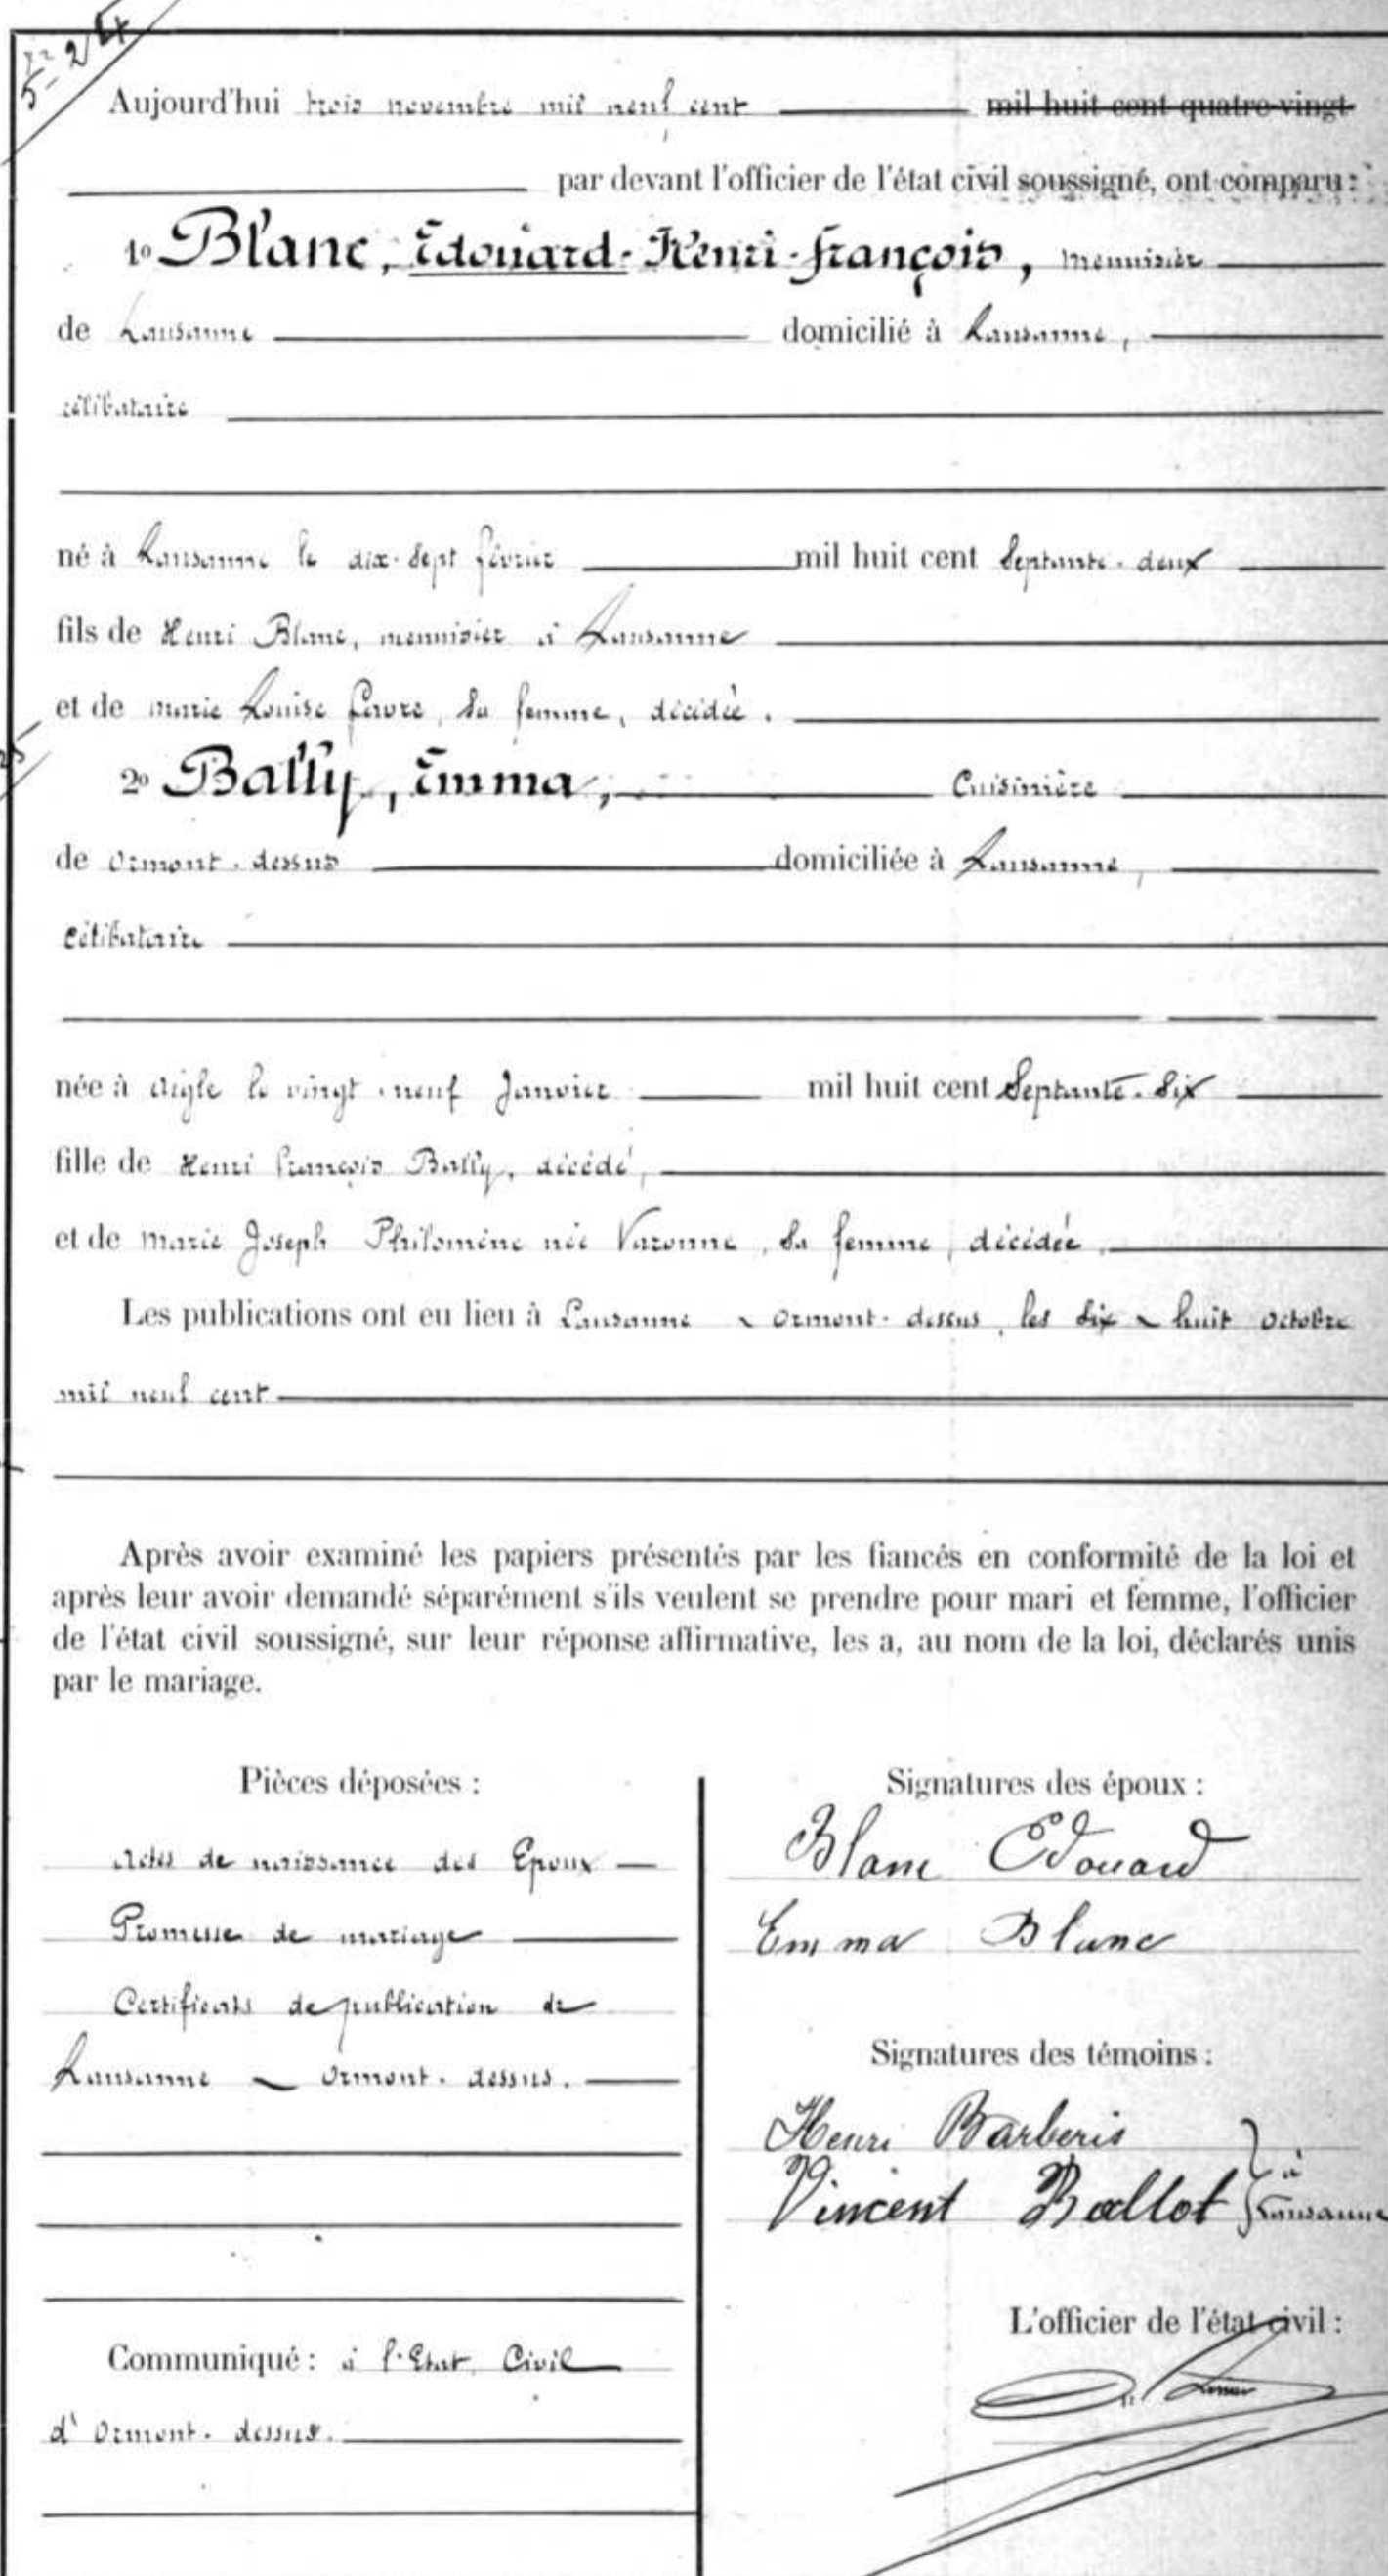 5-2
Aujourd'hui trois novembre mil neuf cent mil huit cent quatre-vingt
par devant l'officier de l'état civil soussigné, ont comparu :
1º Blanc, Edouard-Henri-François, menuisier
de Lausanne domicilié à Lausanne,
célibataire
né à Lausanne le dix-sept février mil huit cent septante-deux
fils de Henri Blanc, menuisier à Lausanne
et de marie Louise Favre, sa femme, décédée.
2º Bally, Emma, Cuisinière
de Ormont-dessus domiciliée à Lausanne,
célibataire
née à Aigle le vingt-neuf Janvier mil huit cent Septante-six
fille de Henri François Bally, décédé,
et de marie Joseph Philomène née Varonne, sa femme, décédée.
Les publications ont eu lieu à Lausanne & Ormont-dessus, les six & huit octobre
mil neuf cent
Après avoir examiné les papiers présentés par les fiancés en conformité de la loi et
après leur avoir demandé séparément s'ils veulent se prendre pour mari et femme, l'officier
de l'état civil soussigné, sur leur réponse affirmative, les a, au nom de la loi, déclarés unis
par le mariage.
Pièces déposées :
Actes de naissance des Epoux
Promesse de mariage
Certificats de publication de
Lausanne & Ormont-dessus.
Communiqué : à l'Etat Civil
d'Ormont-dessus.
Signatures des époux :
Blanc Edouard
Emma Blanc
Signatures des témoins :
Henri Barberis
Vincent Ballot } à Lausanne
L'officier de l'état civil :